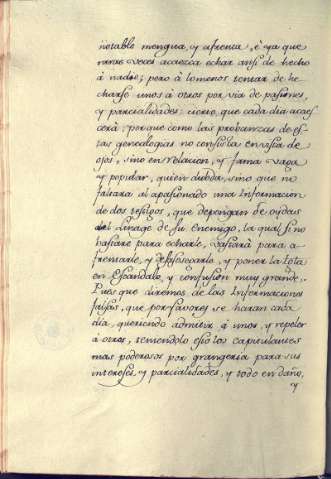 notable mengua, y afrenta, è ya que
raras veces acaezca echar ansi de hecho
à nadie; pero à lo menos tentar de he
charse unos à otros por via de pasiones,
y parcialidades: cierto, que cada dia acaes
cerà; porque como las probanzas de es
tas genealogias no consistan en vista de
ojos, sino en relacion, y fama vaga
y popular, quien duda, sino que no
faltarà al apasionado una Informacion
de dos testigos, que depongan de oydas
del Linage de su enemigo, la qual si no
bastare para echarle, bastarà para a
frentarle, y y poner la
en Escandalo, y confusion muy grande.
Pues que diremos de las Informaciones
falsas, que por favores se haran cada
dia, queriendo admitir à unos, y repeler
à otros, temiendolo esto los capitulantes
mas poderosos por grangeria para sus
intereses, y parcialidades, y todo en daño,
y